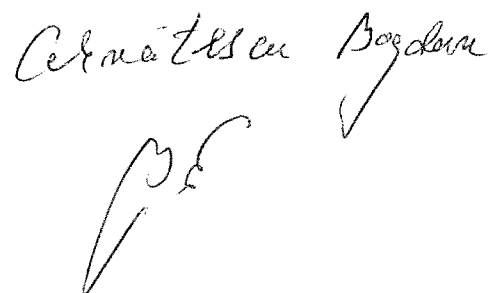 Cernătescu Bogdan